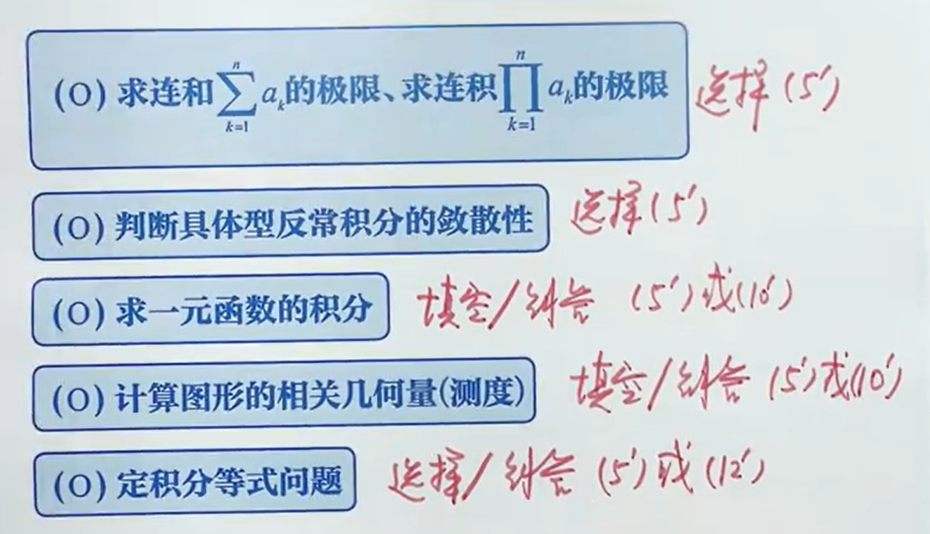 (O) 求连和∑_{k=1}^{n} a_k的极限、求连积∏_{k=1}^{n} a_k的极限 选择 (5′)
(O) 判断具体型反常积分的敛散性 选择 (5′)
(O) 求一元函数的积分 填空/综合 (5′)或(10′)
(O) 计算图形的相关几何量(测度) 填空/综合 (5′)或(10′)
(O) 定积分等式问题 选择/综合 (5′)或(12′)